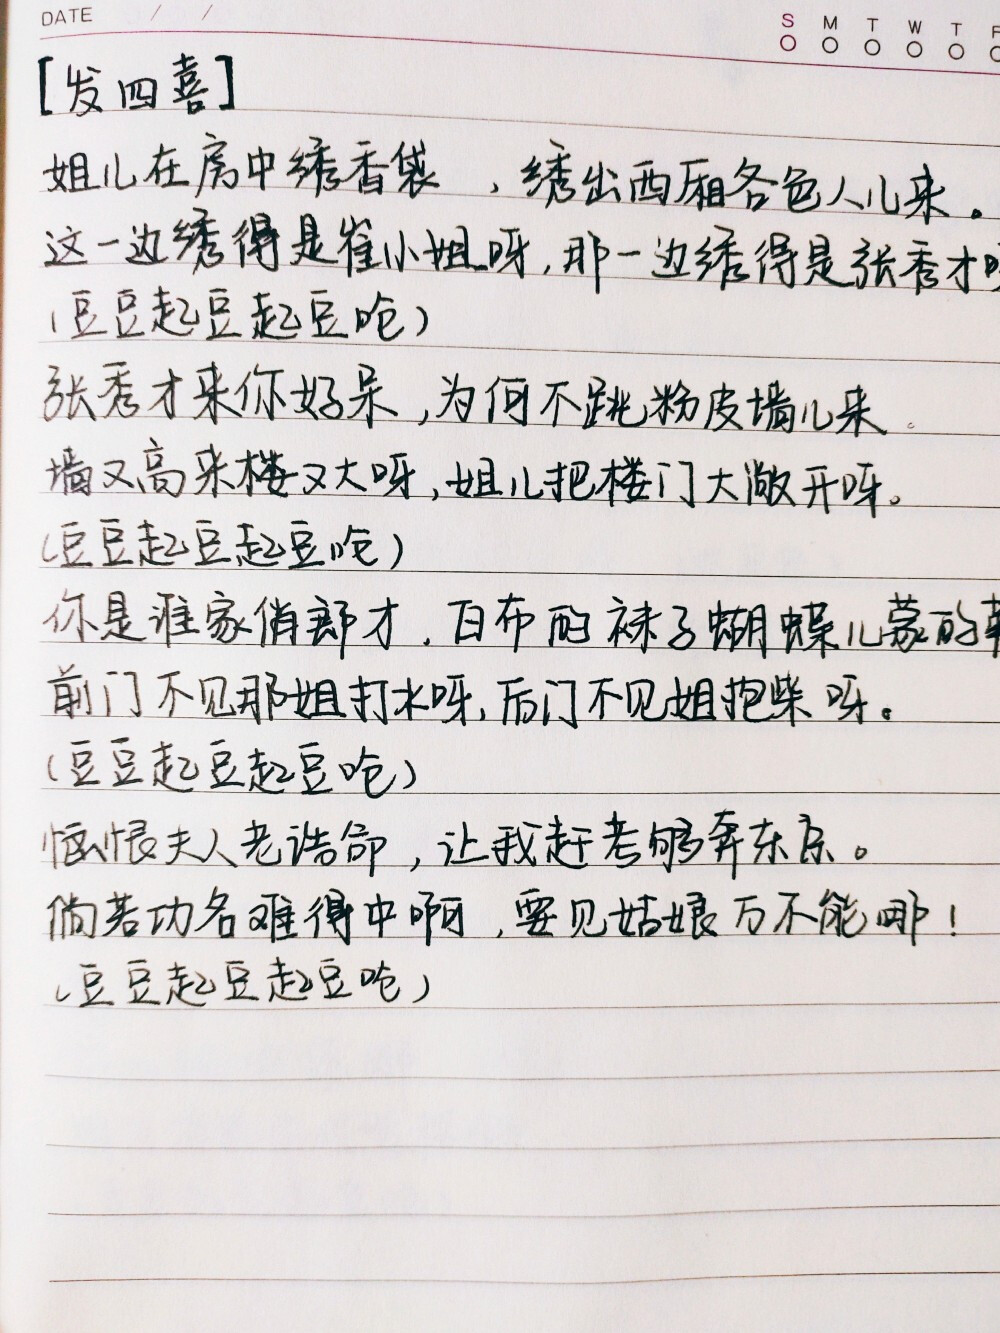 DATE / /
S M T W T F
[发四喜]
姐儿在房中绣香袋，绣出西厢各色人儿来。
这一边绣得是崔小姐呀，那一边绣得是张秀才
（豆豆起豆起豆呛）
张秀才来你好呆，为何不跳粉皮墙儿来。
墙又高来楼又大呀，姐儿把楼门大敞开呀。
（豆豆起豆起豆呛）
你是谁家俏郎才，白布的袜子蝴蝶儿蒙的
前门不见那姐打水呀，后门不见姐抱柴呀。
（豆豆起豆起豆呛）
恼恨夫人老诰命，让我赶考够奔东京。
倘若功名难得中啊，要见姑娘万不能哪！
（豆豆起豆起豆呛）